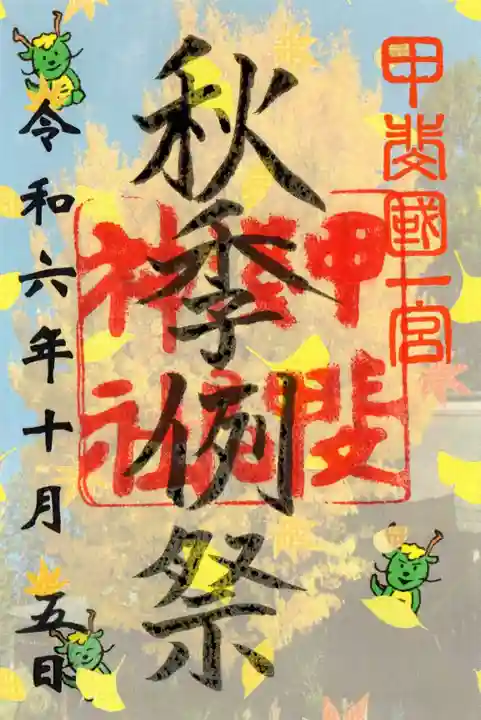 甲斐國一宮
秋季例祭
甲斐
神社
令和六年十月 五日